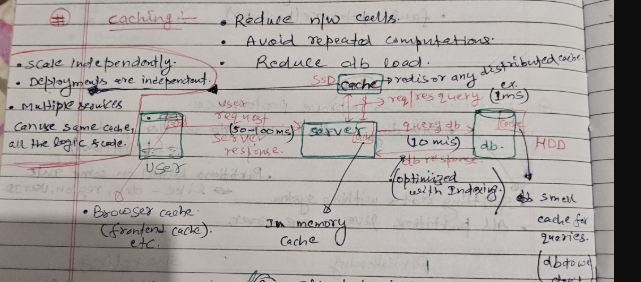 # Caching :-
• Reduce n/w calls.
• Avoid repeated computations.
• Reduce db load.
• Scale independently.
• Deployments are independent.
• Multiple services
can use same cache,
all the logic scale.
SSD
Cache → redis or any distributed cache.
ex.
req/res query (1ms)
user
request
(50-100ms)
server
response.
Server
Cache
query db
(10 ms)
db response
Cache
db.
HDD
User
(optimized
with Indexing.)
• Browser cache.
(frontend cache).
etc.
In memory
Cache
db small
cache for
queries.